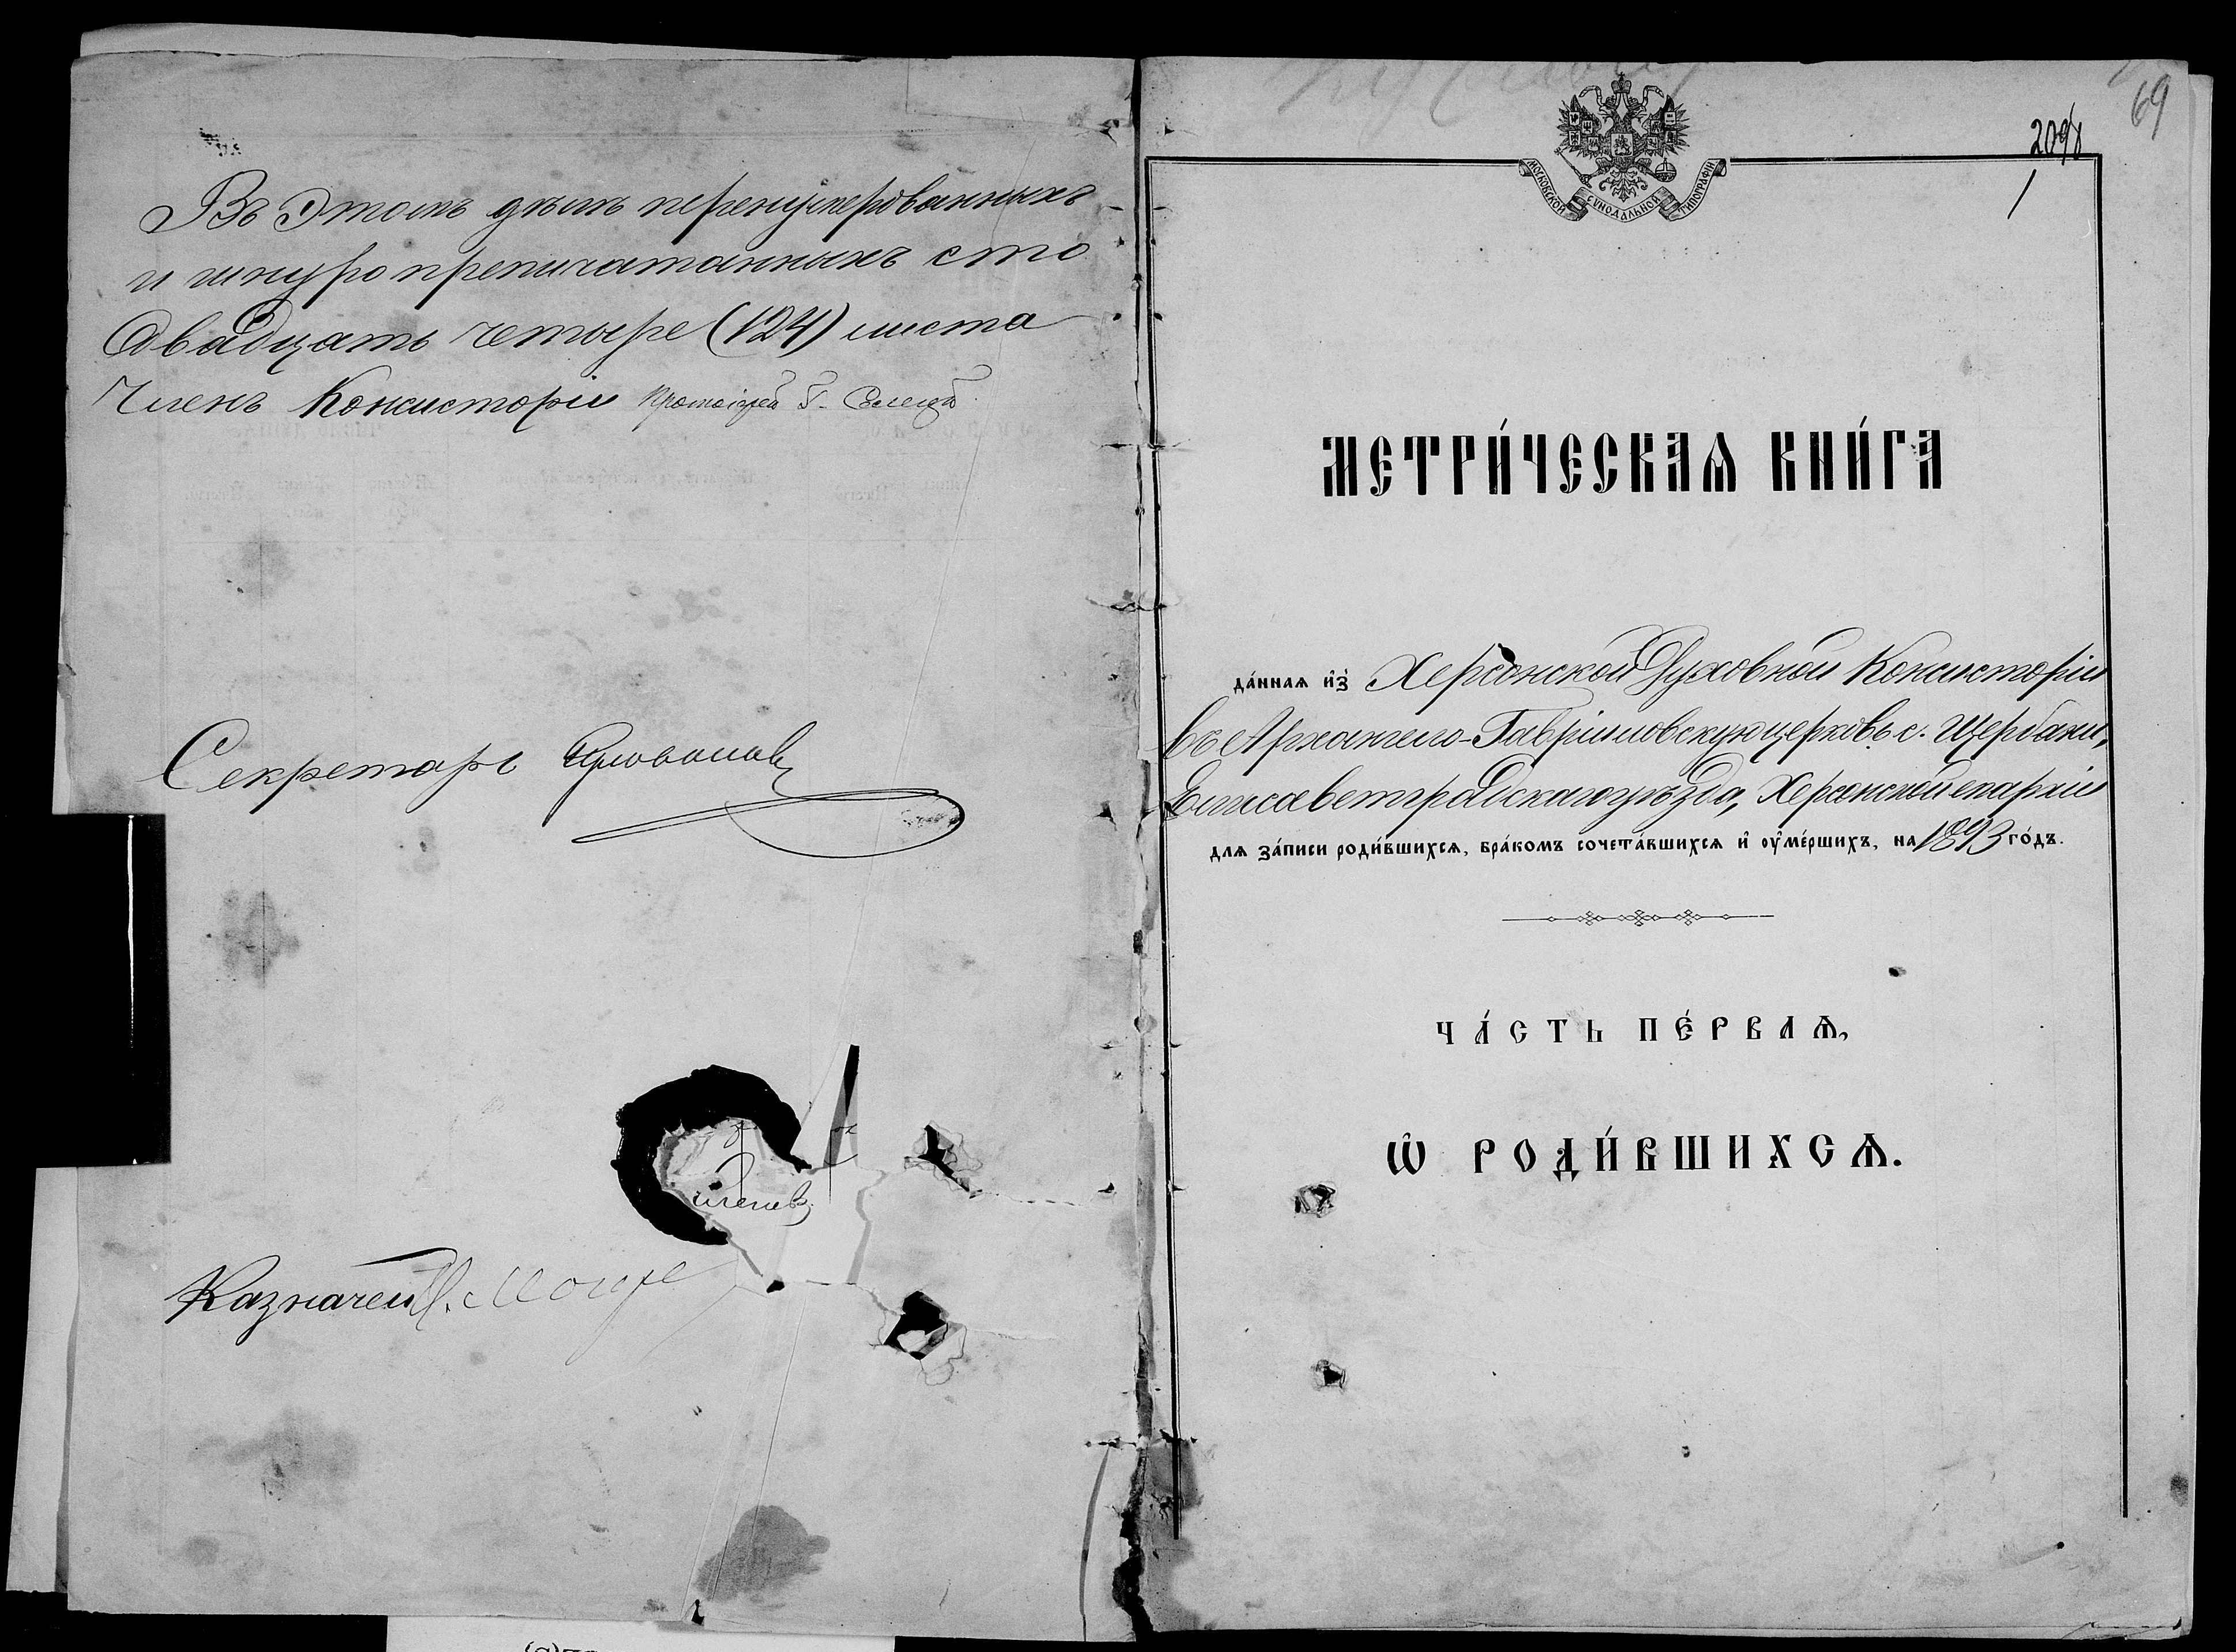 Въ этомъ дѣлѣ перенумерованныхъ
и шнуропрепечатанныхъ сто
двадцать четыре (124) листа
Членъ Консисторіи Протоіерей
Секретарь
Казначей
69
2098
1
МОСКОВСКОЙ СѴНОДАЛЬНОЙ ТИПОГРАФІИ
МЕТРИ́ЧЕСКАѦ КНИ́ГА
да́ннаѧ и҆з̾ Херсонской Духовной Консисторіи
въ Архангело-Гавріиловскую церковь с. Щербани,
Елисаветградскаго уѣзда, Херсонской епархіи
длѧ за́писи роди́вшихсѧ, бра́комъ сочета́вшихсѧ и҆ ᲂу҆ме́ршихъ, на 1893 го́дъ.
ЧА́СТЬ ПЕ́РВАѦ,
Ѡ҆ РОДИ́ВШИХСѦ.